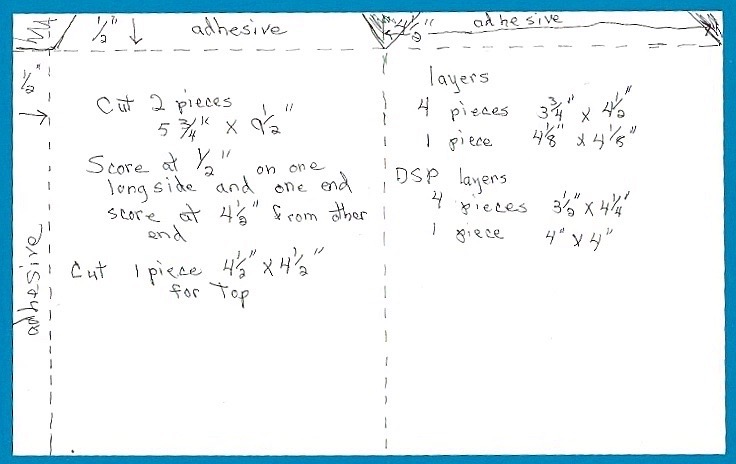 1/2" ↓ adhesive
4 1/2" adhesive
1/2"
adhesive
Cut 2 pieces
5 3/4" x 9 1/2"
Score at 1/2" on one
long side and one end
score at 4 1/2" from other
end
Cut 1 piece 4 1/2" x 4 1/2"
for Top
layers
4 pieces 3 3/4" x 4 1/2"
1 piece 4 1/8" x 4 1/8"
DSP layers
4 pieces 3 1/2" x 4 1/4"
1 piece 4" x 4"